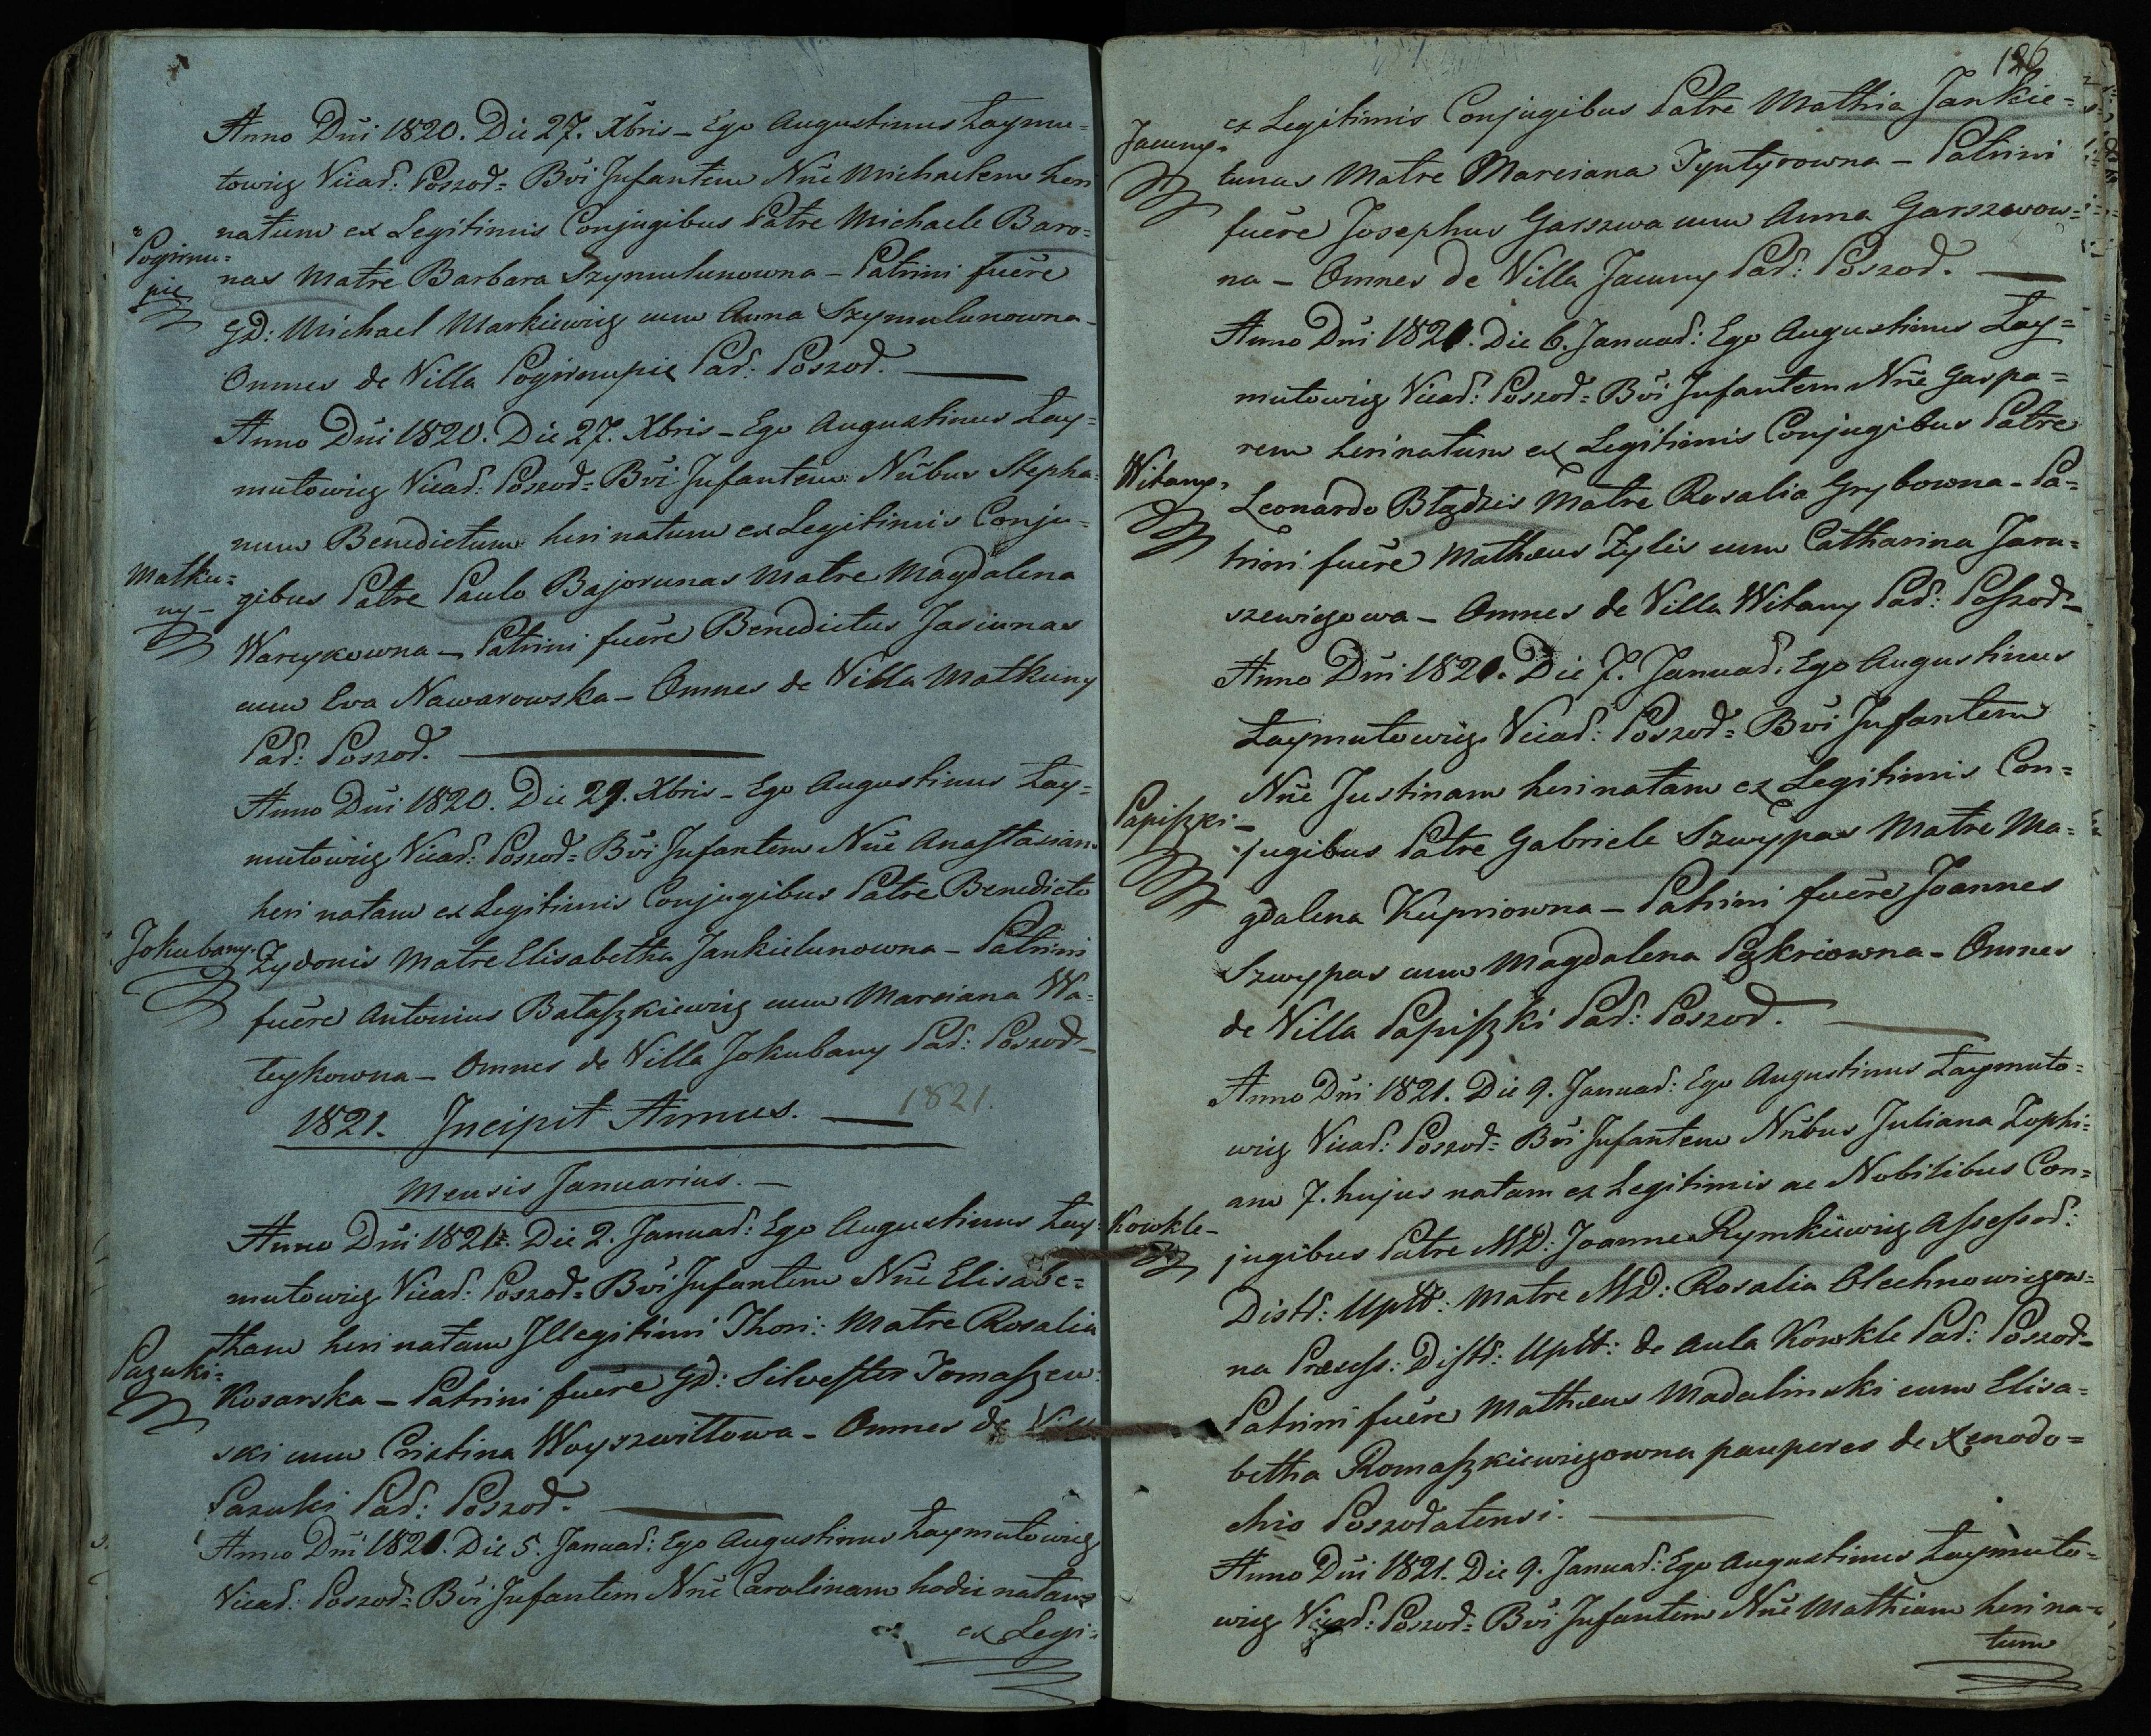 Anno Dñi 1820. Die 27. Xbris _ Ego Augustinus Łaymu=
towicz Vicar: Poszod= Bvi Infantem Nñe Michaelem heri
natum ex Legitimis Conjugibus Patre Michaele Baro=
Pogirnu=
pie
nas Matre Barbara Szymulunowna _ Patrini fuere
GD: Michael Markiewicz cum Anna Szymulunowna _
Omnes de Villa Pogirnupie Par: Poszod.
Anno Dñi 1820. Die 27. Xbris _ Ego Augustinus Łay=
mutowicz Vicar: Poszod= Bvi Infantem Nñibus Stepha=
num Benedictum heri natum ex Legitimis Conju=
Matku=
ny _
gibus Patre Paulo Bajorunas Matre Magdalena
Wareykowna _ Patrini fuere Benedictus Jasiunas
cum Eva Nawarowska _ Omnes de Villa Matkuny
Par: Poszod.
Anno Dñi 1820. Die 29. Xbris _ Ego Augustinus Łay=
mutowicz Vicar: Poszod= Bvi Infantem Nñe Anastasiam
heri natam ex Legitimis Conjugibus Patre Benedicto
Jokubany.
Zydonis Matre Elisabetha Jankielunowna _ Patrini
fuere Antonius Bataszkiewicz cum Marciana Wa=
teykowna _ Omnes de Villa Jokubany Par: Poszod _
1821. Incipit Annus. _ 1821.
Mensis Januarius. _
Anno Dñi 1821. Die 2. Januar: Ego Augustinus Łay=
mutowicz Vicar: Poszod= Bvi Infantem Nñe Elisabe=
tham heri natam Illegitimi Thori: Matre Rosalia
Pazuki=
Kosarska _ Patrini fuere GD: Silvester Tomaszew=
ski cum Cristina Woyszwiłłowa _ Omnes de Villa
Pazuki Par: Poszod.
Anno Dñi 1821. Die 5. Januar: Ego Augustinus Łaymutowicz
Vicar: Poszod= Bvi Infantem Nñe Carolinam hodie natam
ex Legi=
126
ex Legitimis Conjugibus Patre Mathia Jankie=
Jauny.
tunas Matre Marciana Tyntyrowna _ Patrini
fuere Josephus Garszwa cum Anna Garszwow=
na _ Omnes de Villa Jauny Par: Poszod.
Anno Dñi 1821. Die 6. Januar: Ego Augustinus Łay=
mutowicz Vicar: Poszod= Bvi Infantem Nñe Gaspa=
rem heri natum ex Legitimis Conjugibus Patre
Witany.
Leonardo Błądzis Matre Rosalia Grybowna _ Pa=
trini fuere Mathæus Zylis cum Catharina Jaru=
szewiczowa _ Omnes de Villa Witany Par: Poszod _
Anno Dñi 1821. Die 7. Januar: Ego Augustinus
Łaymutowicz Vicar: Poszod= Bvi Infantem
Nñe Justinam heri natam ex Legitimis Con=
Papiszki _
jugibus Patre Gabriele Szwypas Matre Ma=
gdalena Kupriowna _ Patrini fuere Joannes
Szwypas cum Magdalena Pozkriowna _ Omnes
de Villa Papiszki Par: Poszod.
Anno Dñi 1821. Die 9. Januar: Ego Augustinus Łaymuto=
wicz Vicar: Poszod= Bvi Infantem Nñibus Juliana Zophi=
am 7. hujus natam ex Legitimis ac Nobilibus Con=
Kowkle _
jugibus Patre MD: Joanne Rymkiewicz Assessor:
Distr: Uptt: Matre MD: Rosalia Olechnowiczow=
na Præcess: Distr: Uptt: de Aula Kowkle Par: Poszod _
Patrini fuere Mathæus Madalinski cum Elisa=
betha Romaszkiewiczowna pauperes de Xenodo=
chio Poszodatensi.
Anno Dñi 1821. Die 9. Januar: Ego Augustinus Łaymuto=
wicz Vicar: Poszod= Bvi Infantem Nñe Mathiam heri na=
tum